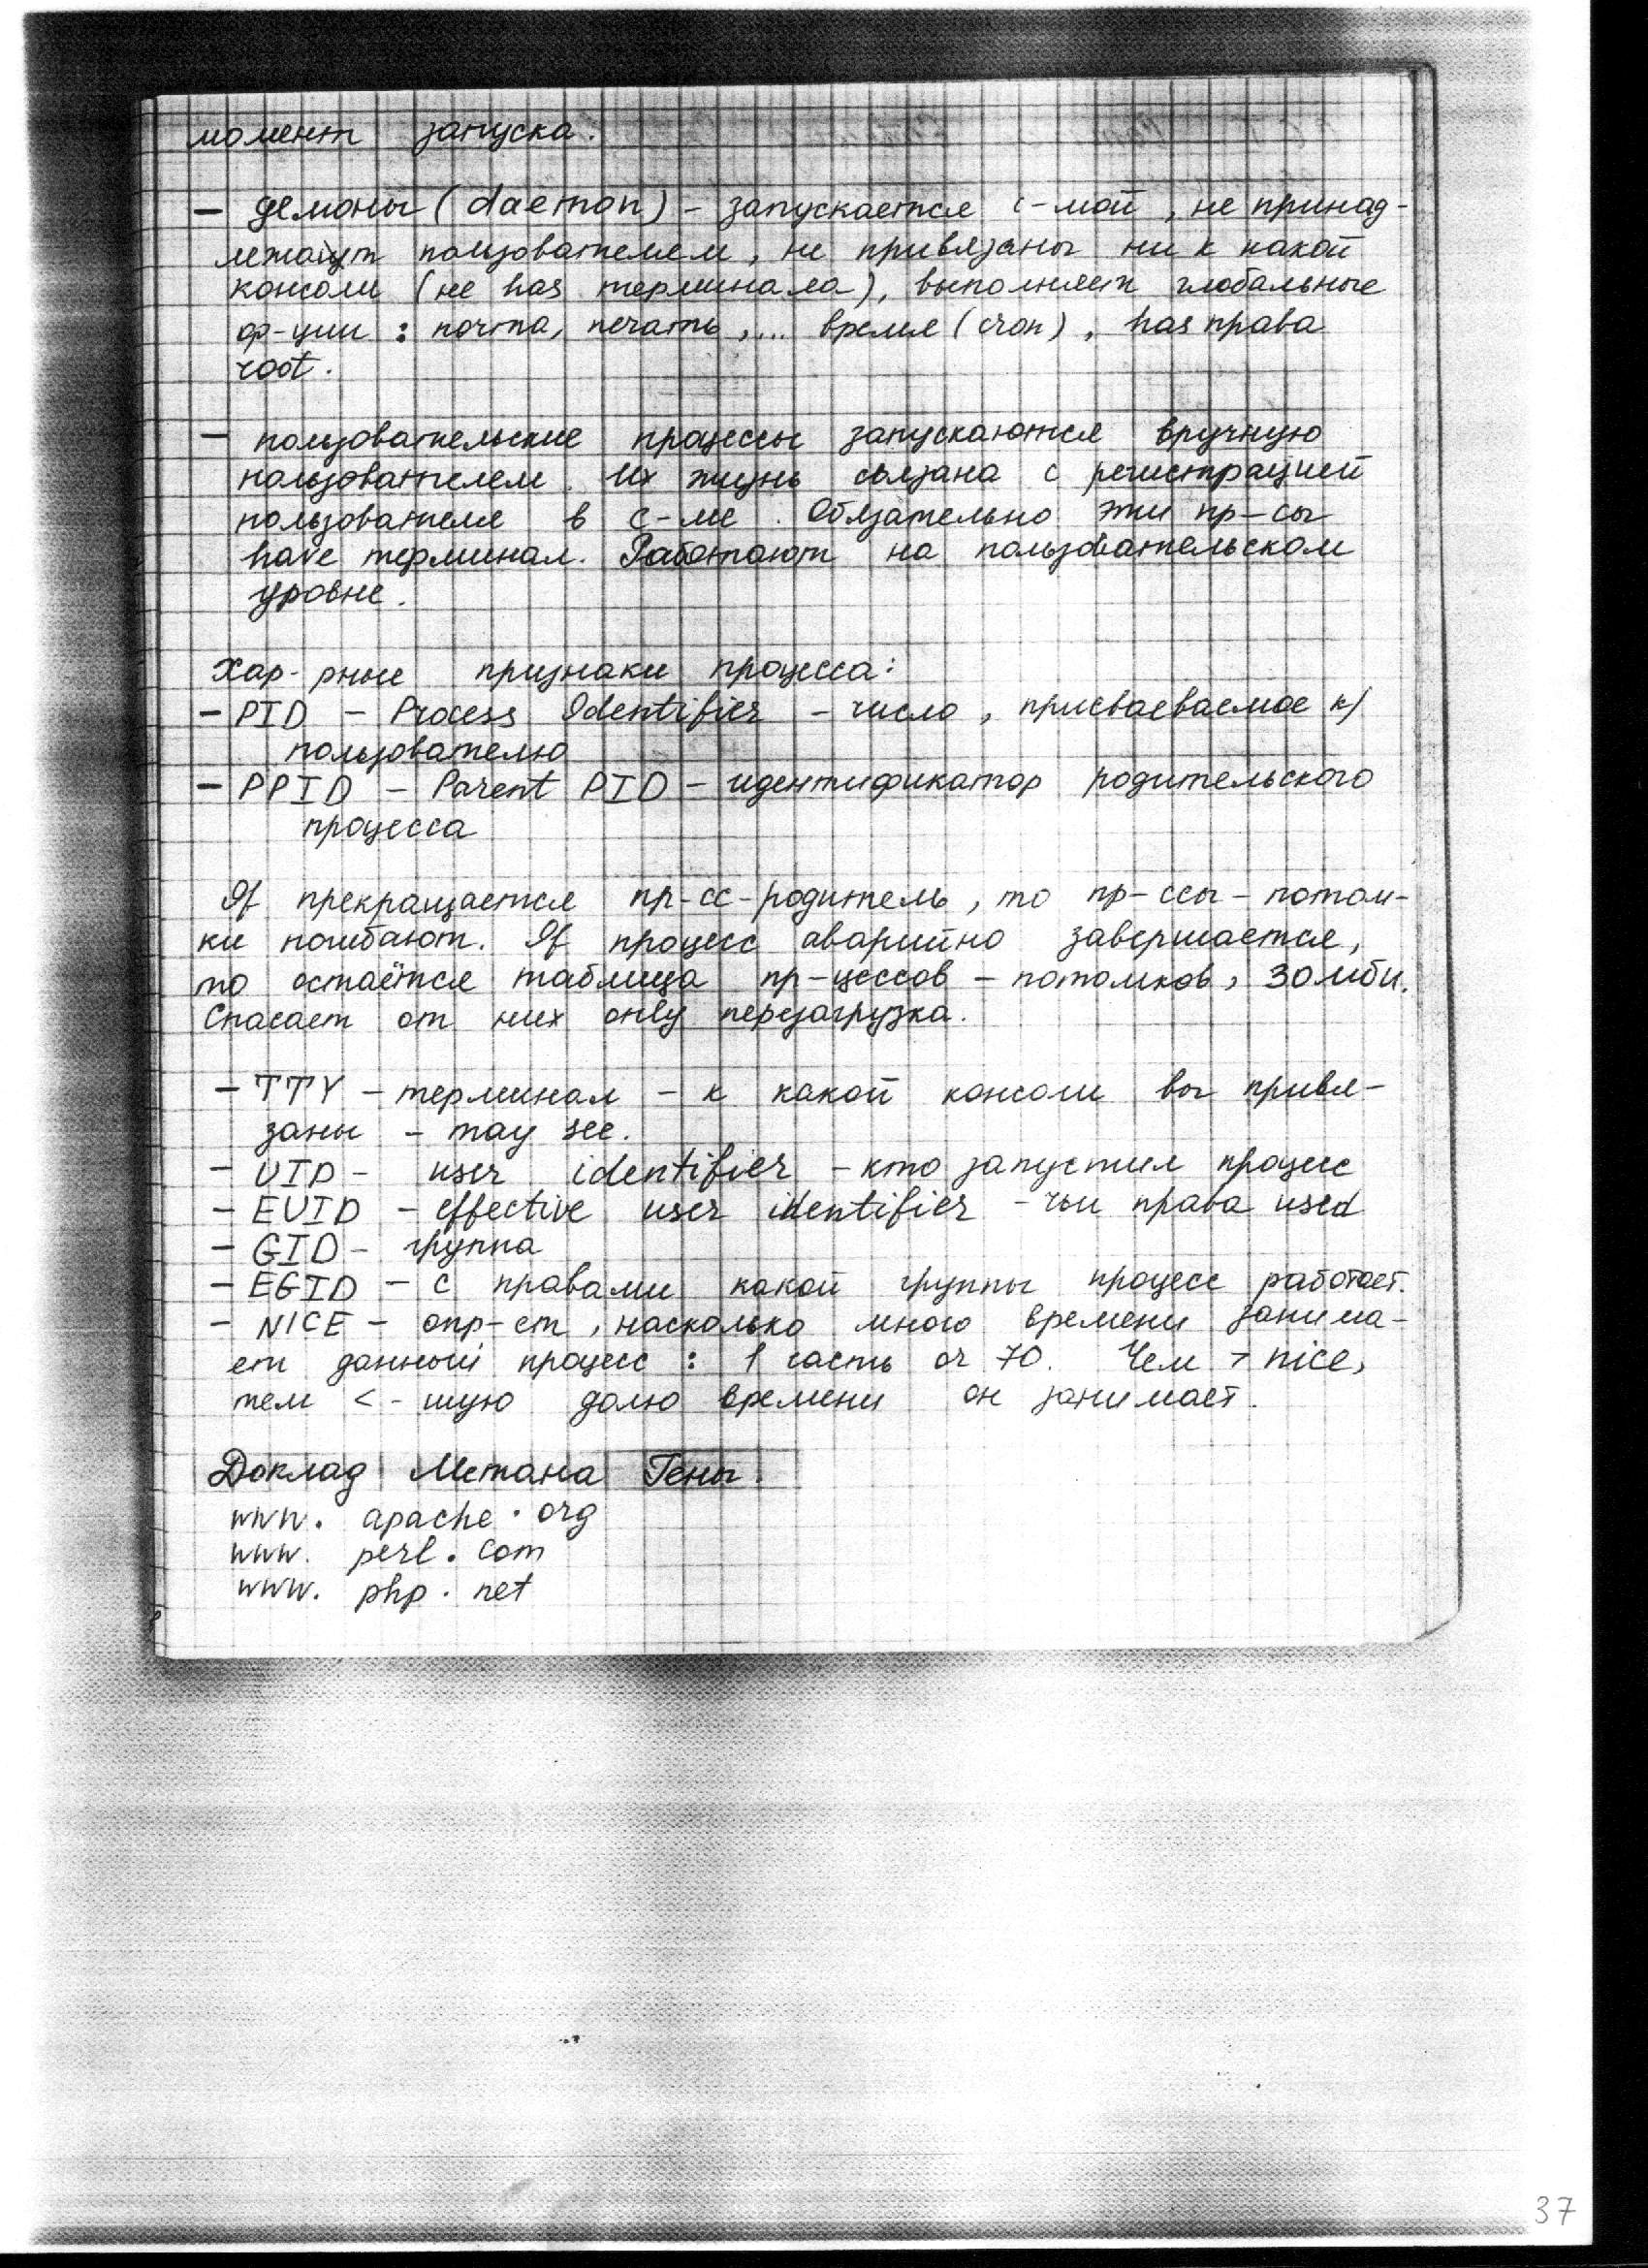 момент запуска.
– демоны (daemon) – запускается с-мой, не принад-
лежащт пользователем, не привязаны ни к какой
консоли (не has терминала), выполняет глобальные
ф-ции : почта, печать, ... время (cron), has права
root.
– пользовательские процессы запускаются вручную
пользователем. Их жизнь связана с регистрацией
пользователя в с-ме. Обязательно эти пр-сы
have терминал. Работают на пользовательском
уровне.
Хар-рные признаки процесса:
– PID – Process Identifier – число, присваеваемое к/
пользователю
– PPID – Parent PID – идентификатор родительского
процесса
If прекращается пр-сс-родитель, то пр-ссы – потом-
ки погибают. If процесс аварийно завершается,
то остаётся таблица пр-цессов – потомков, зомби.
Спасает от них only перезагрузка.
– TTY – терминал – к какой консоли вы привя-
заны – may see.
– UID – user identifier – кто запустил процесс
– EUID – effective user identifier – чьи права used
– GID – группа
– EGID – с правами какой группы процесс работает.
– NICE – опр-ет, насколько много времени занима-
ет данный процесс : 1 часть от 70. Чем > nice,
тем < - шую долю времени он занимает.
Доклад Метана Гены.
www. apache . org
www. perl . com
www. php . net
37